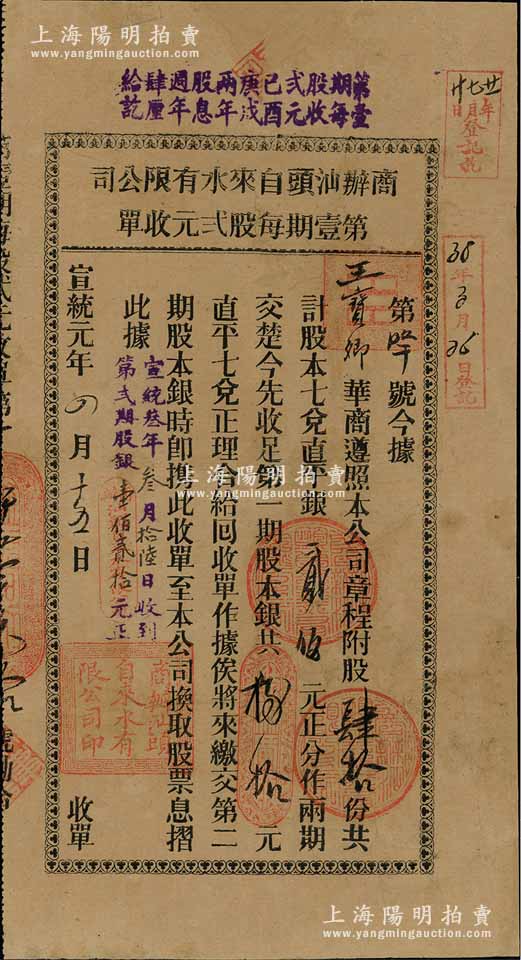 上海陽明拍賣
www.yangmingauction.com
第壹期股弍已庚兩股週肆給
每收元酉戌年息年厘訖
廿七年
月
日登記訖
38年3月26日登記
商辦汕頭自來水有限公司
第壹期每股弍元收單
第 號今據
王寶卿華商遵照本公司章程附股肆拾份共
計股本七兌直平銀貳佰元正分作兩期
交楚今先收足第一期股本銀共捌拾元
直平七兌正理合給回收單作據俟將來繳交第二
期股本銀時即攜此收單至本公司換取股票息摺
此據
宣統叁年叁月拾陸日收到
第弍期股銀壹佰貳拾元正
宣統元年四月十五日
收單
商辦汕頭
自來水有
限公司印
第壹期每股弍元收單第
上海陽明拍賣
www.yangmingauction.com
上海陽明拍賣
www.yangmingauction.com